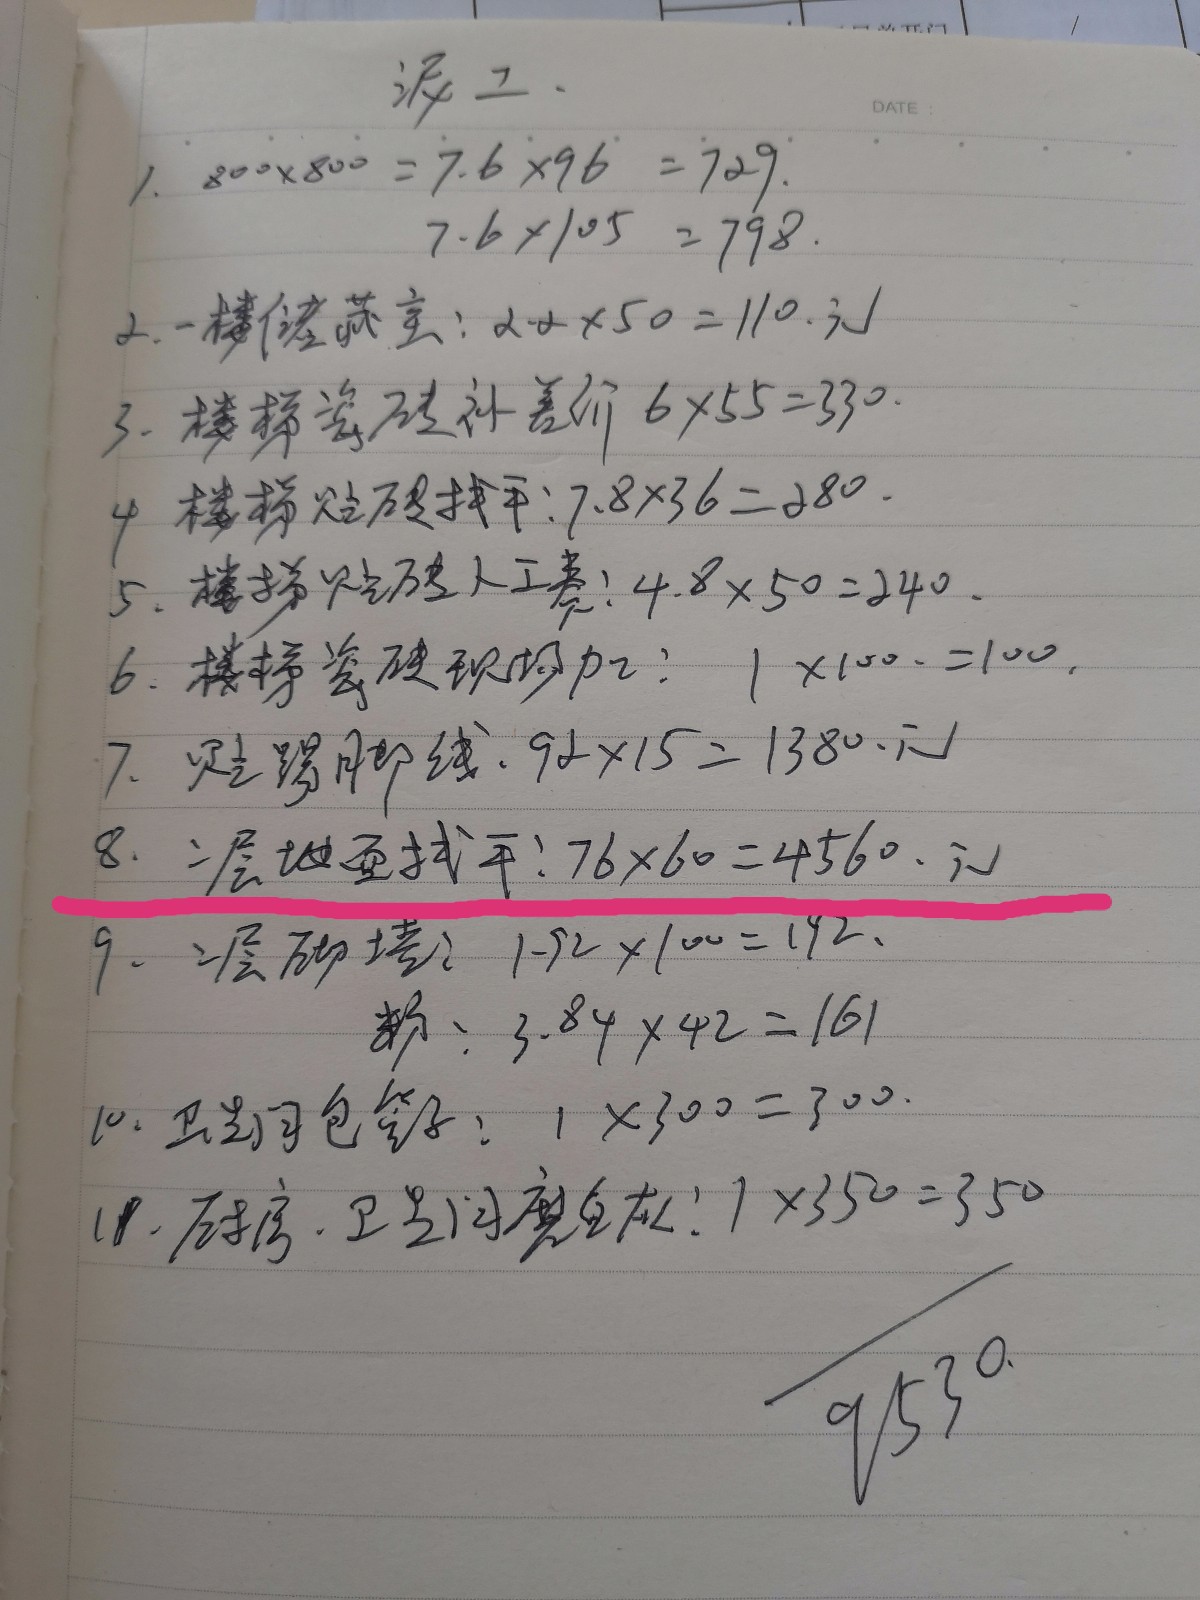 泥工.
DATE:
1. 800×800 = 7.6×96 = 729.
7.6×105 = 798.
2. 一楼储藏室: 2.2×50=110.元
3. 楼梯瓷砖补差价 6×55=330.
4 楼梯贴砖找平: 7.8×36=280.
5. 楼梯贴砖人工费: 4.8×50=240.
6. 楼梯瓷砖现场加工: 1×100.=100.
7. 贴踢脚线. 92×15=1380.元
8. 二层地面找平: 76×60=4560.元
9. 二层砌墙: 1.92×100=192.
粉: 3.84×42=161
10. 卫生间包管子: 1×300=300.
11. 厨房.卫生间 1×350=350
9530.